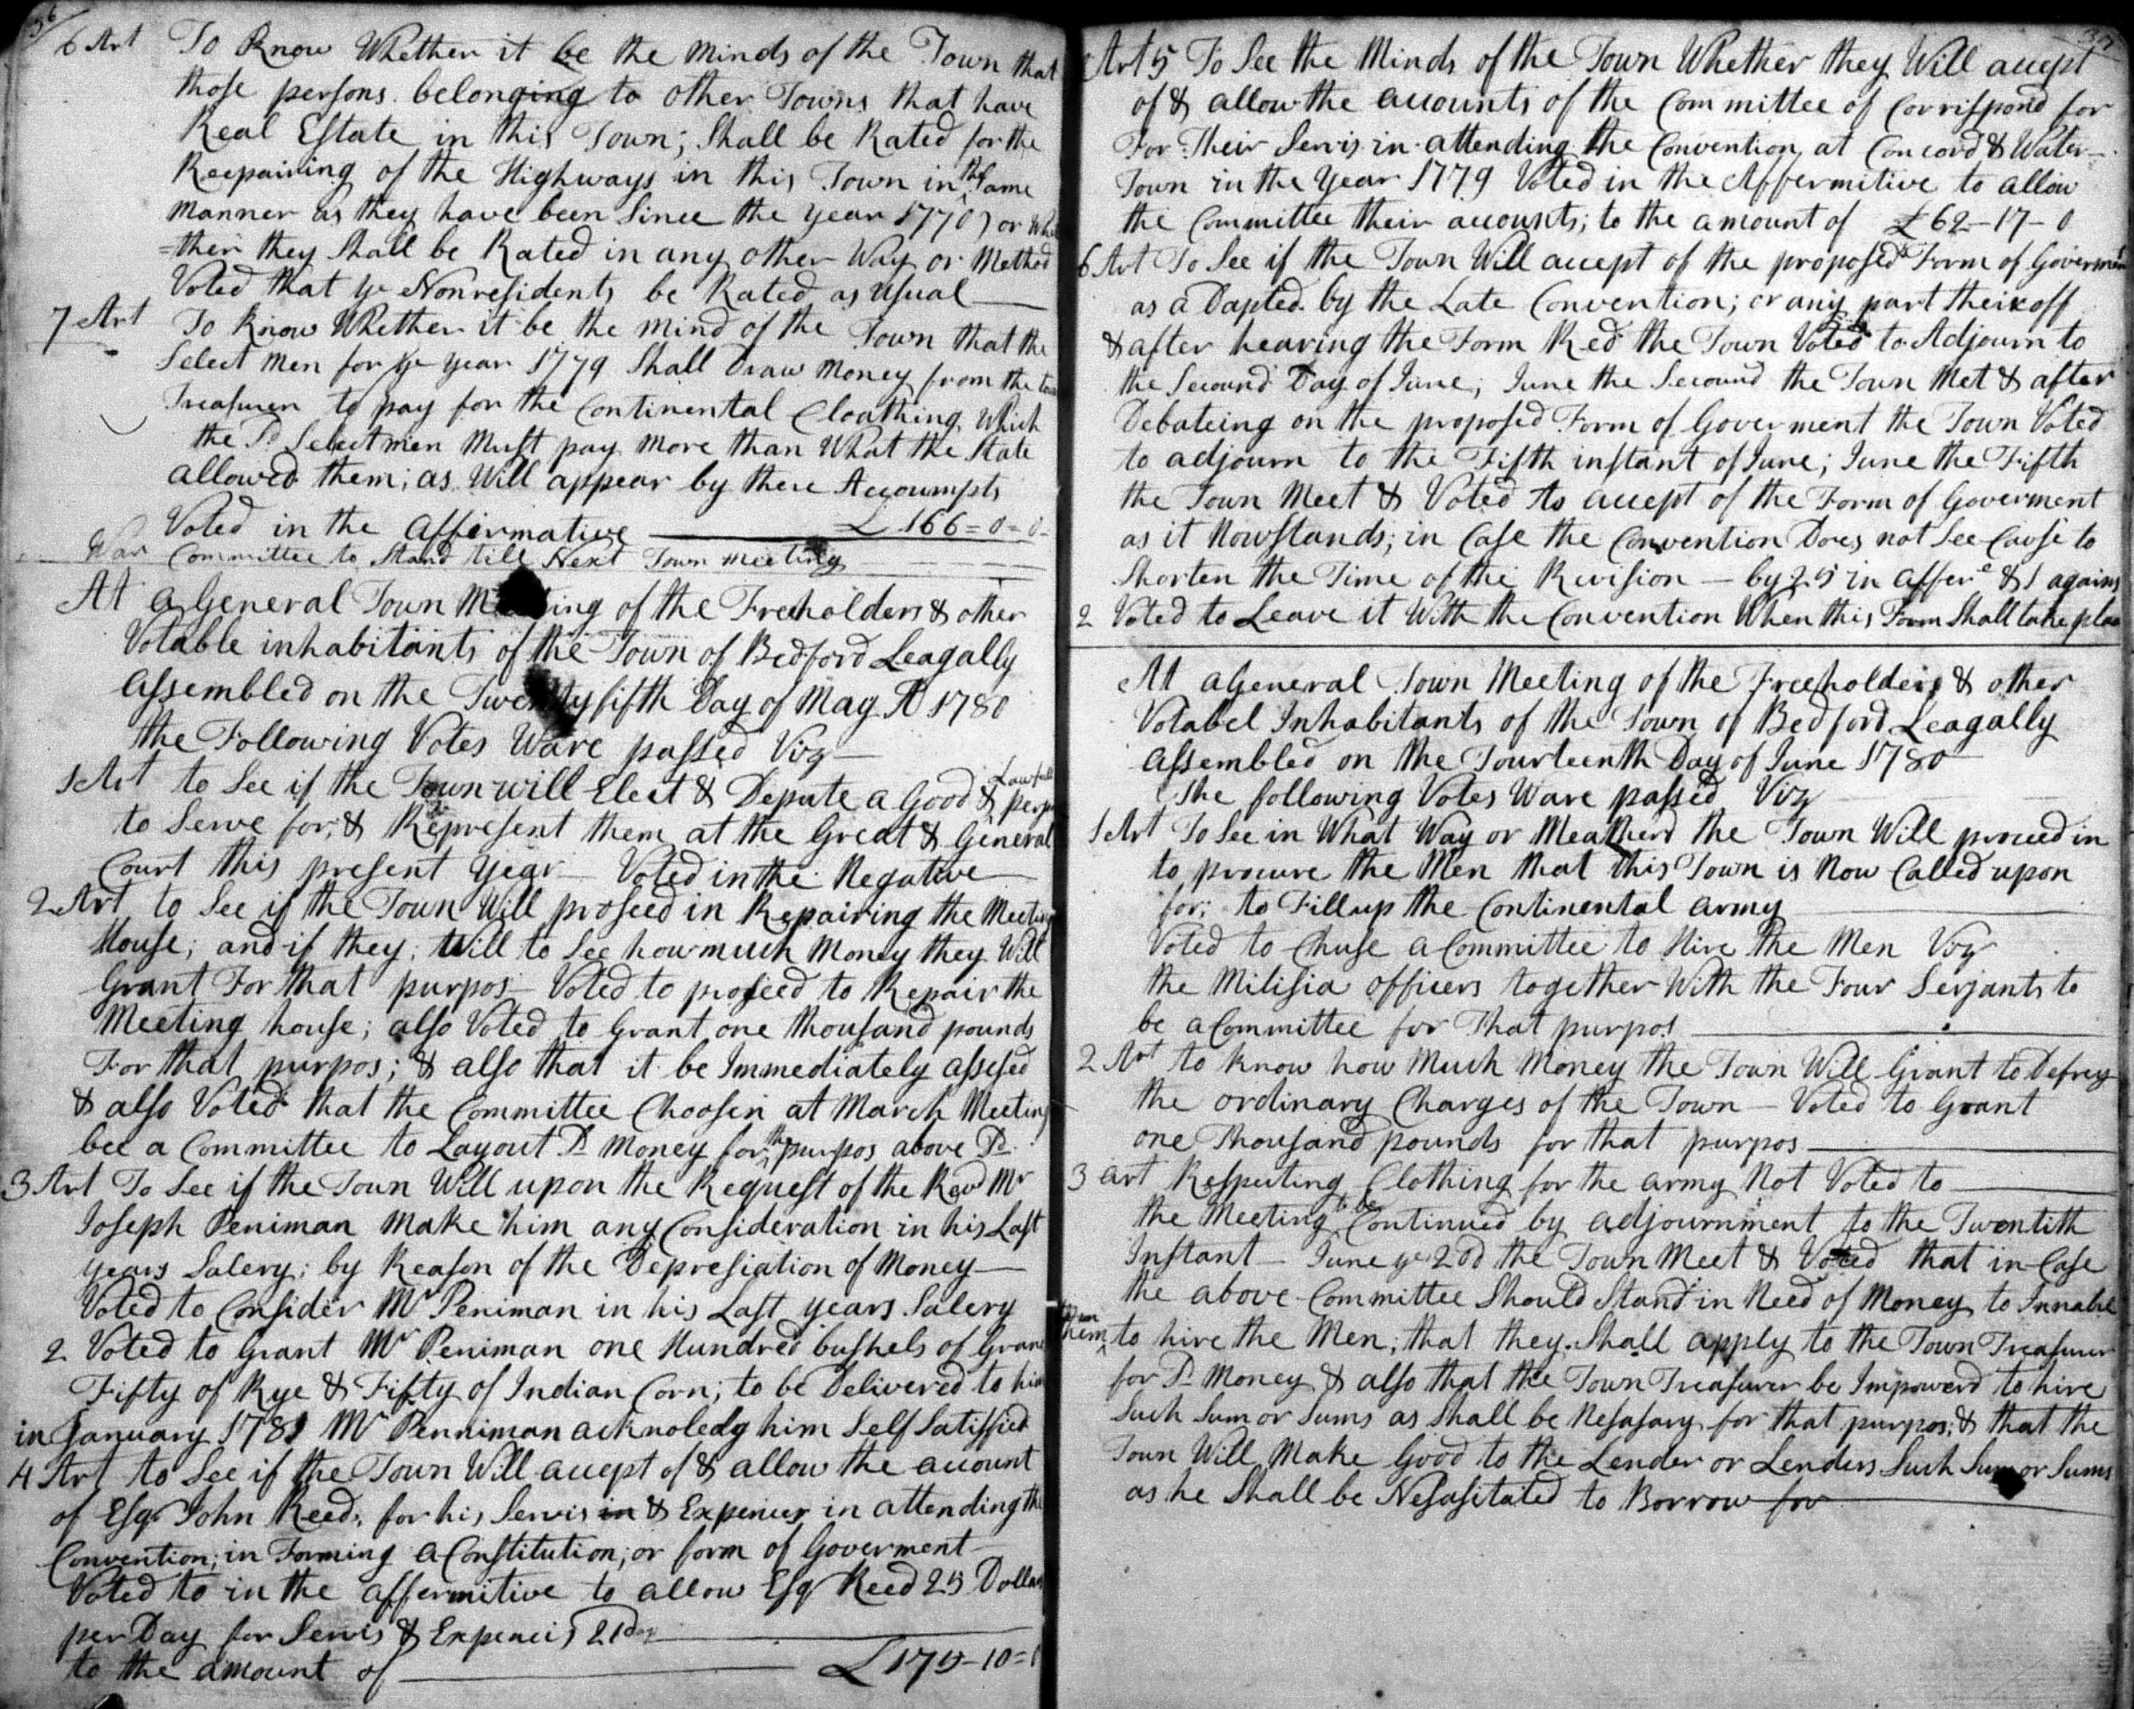 36
6 Art To Know Whether it be the minds of the Town that
those persons belonging to other Towns that have
Real Estate in this Town; Shall be Rated for the
Reepairing of the Highways in this Town in the Same
manner as they have been Since the year 1770) or Whe
=ther they Shall be Rated in any other Way or Method
Voted that ye Nonresidents be Rated as Usual
7 Art To Know Whether it be the mind of the Town that the
Select men for ye year 1779 Shall Draw money from the
Treasurer to pay for the Continental Cloathing Which
the Sd Selectmen Must pay more than What the State
allowed them; as Will appear by there Accoumpts
Voted in the affirmative £ 166=0=0-
War Committee to Stand till Next Town meeting
At a General Town Meeting of the Freholders & other
Votable inhabitants of the Town of Bedford Leagally
assembled on the Twentyfifth Day of May AD 1780
the Following Votes Ware passed Viz
1 Art to See if the Town will Elect & Depute a Good & Lawfull person
to Serve for; & Represent them at the Great & General
Court this present year Voted in the Negative
2 Art to See if the Town Will proseed in Repairing the Meeting
House; and if they Will to See how much Money they Will
Grant For that purpos Voted to proseed to Repair the
Meeting house; also Voted to Grant one thousand pounds
For that purpos; & also that it be Immediately assesed
& also Voted that the Committee Choosen at March Meeting
bee a Committee to Layout Sd Money for the purpos above Sd
3 Art To See if the Town Will upon the Request of the Revd Mr
Joseph Peniman Make him any Consideration in his Last
years Salery; by Reason of the Depresiation of Money
Voted to Consider Mr Peniman in his Last years Salery
2 Voted to Grant Mr Peniman one Hundred bushels of Grane
Fifty of Rye & Fifty of Indian Corn; to be Delivered to him
in January 1781 Mr Penniman acknoledg him Self Satisfied
4 Art to See if the Town Will accept of & allow the account
of Esqr John Reed; for his Servis in & Expences in attending the
Convention; in Forming a Constitution; or form of Goverment
Voted to in the affermitive to allow Esqr Reed 25 Dollars
per Day for Servis & Expences 21 Day
to the amount of £179-10=
37
Art 5 To See the Minds of the Town Whether they Will accept
of & allow the accounts of the Committee of Corrispond for
For Their Servis in attending the Convention at Concord & Water-
Town in the Year 1779 Voted in the Affermitive to allow
the Committee their accounts; to the amount of £62-17-0
6 Art To See if the Town Will accept of the proposed Form of Goverment
as a Dapted by the Late Convention; or any part their off
& after hearing the Form Red the Town Voted to Adjourn to
the Secound Day of June; June the Secound the Town Met & after
Debateing on the proposed Form of Goverment the Town Voted
to adjourn to the Fifth instant of June; June the Fifth
the Town Meet & Voted to accept of the Form of Goverment
as it Now Stands; in Case the Convention Does not See Cause to
Shorten the Time of the Revision — by 25 in affere & 1 against
2 Voted to Leave it With the Convention When this Form Shall take place
At a General Town Meeting of the Freeholders & other
Votabel Inhabitants of the Town of Bedford Leagally
assembled on the Fourteenth Day of June 1780
The following Votes Ware passed Viz
1 Art To See in What Way or Meatherd the Town Will proceed in
to procure the Men that this Town is Now Called upon
for; to Fill up the Continental army
Voted to Chuse a Committee to Hire the Men Viz
the Milisia officers together With the Four Serjants to
be a Committee for That purpos
2 Art to know how Much Money the Town Will Grant to Defrey
the ordinary Charges of the Town — Voted to Grant
one Thousand pounds for that purpos
3 art Respecting Clothing for the army Not Voted to
the Meeting to be Continued by adjournment to the Twentith
Instant — June ye 20d the Town Meet & Voted that in Case
the above Committee Should Stand in Need of Money to Innable
them to hire the Men; that they Shall apply to the Town Treasurer
for Sd Money & also that the Town Treasurer be Impowerd to hire
Such Sum or Sums as Shall be Nesasary for that purpos; & that the
Town Will Make Good to the Lender or Lenders Such Sum or Sums
as he Shall be Nesasitated to Borrow for